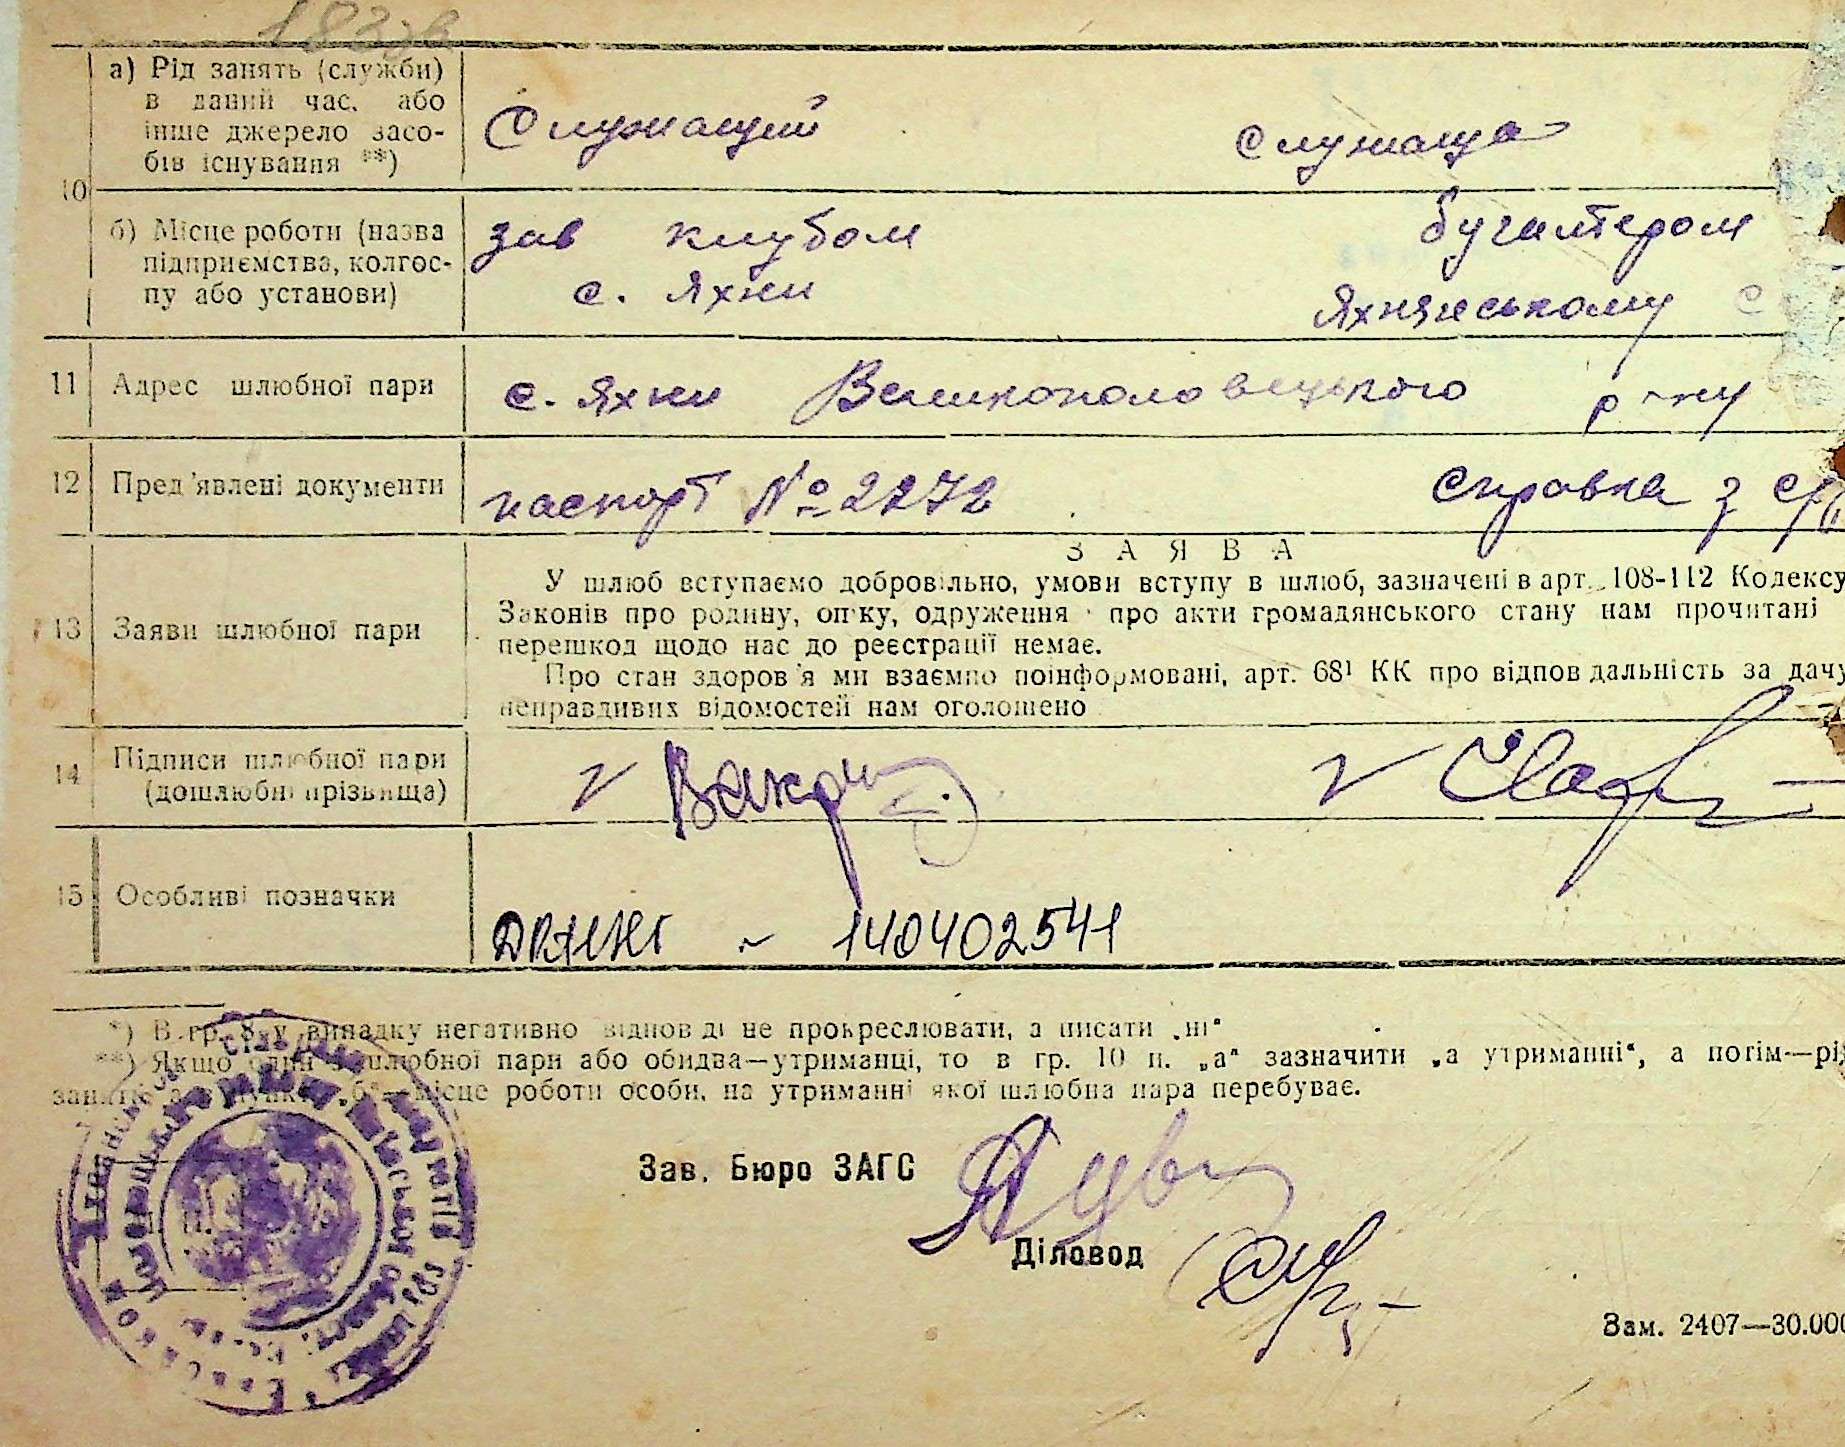 10
а) Рід занять (служби)
в даний час, або
інше джерело засо-
бів існування **)
Служащий
служаща
б) Місце роботи (назва
підприємства, колгос-
пу або установи)
зав клубом
с. Яхни
бугалтером
Яхнянському с
11 Адрес шлюбної пари
с. Яхни Великополовецького р-ну
12 Пред'явлені документи
паспорт № 2272
справка з
13 Заяви шлюбної пари
ЗАЯВА
У шлюб вступаємо добровільно, умови вступу в шлюб, зазначені в арт. 108-112 Кодексу
Законів про родину, опіку, одруження про акти громадянського стану нам прочитані
перешкод щодо нас до реєстрації немає.
Про стан здоров'я ми взаємно поінформовані, арт. 68¹ КК про відповідальність за дачу
неправдивих відомостей нам оголошено
14 Підписи шлюбної пари
(дошлюбні прізвища)
15 Особливі позначки
140402541
*) В гр. 8 у випадку негативно відповіді не прокреслювати, а писати „ні“
**) Якщо один з шлюбної пари або обидва—утриманці, то в гр. 10 п. „а“ зазначити „а утриманні“, а потім—рід
занять, а в пункті „б“ місце роботи особи, на утриманні якої шлюбна пара перебуває.
Зав. Бюро ЗАГС
Діловод
Зам. 2407—30.000